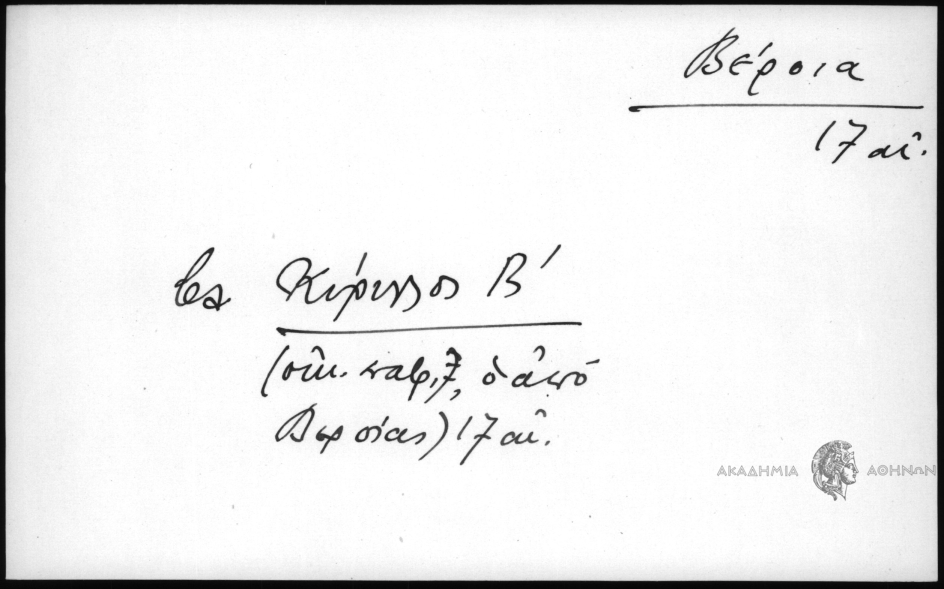 Βέροια
17 αἰ.
Κύριλλος Β΄
(οἰκ. πατρ., ὁ ἀπό
Βεροίας) 17 αἰ.
ΑΚΑΔΗΜΙΑ ΑΘΗΝΩΝ